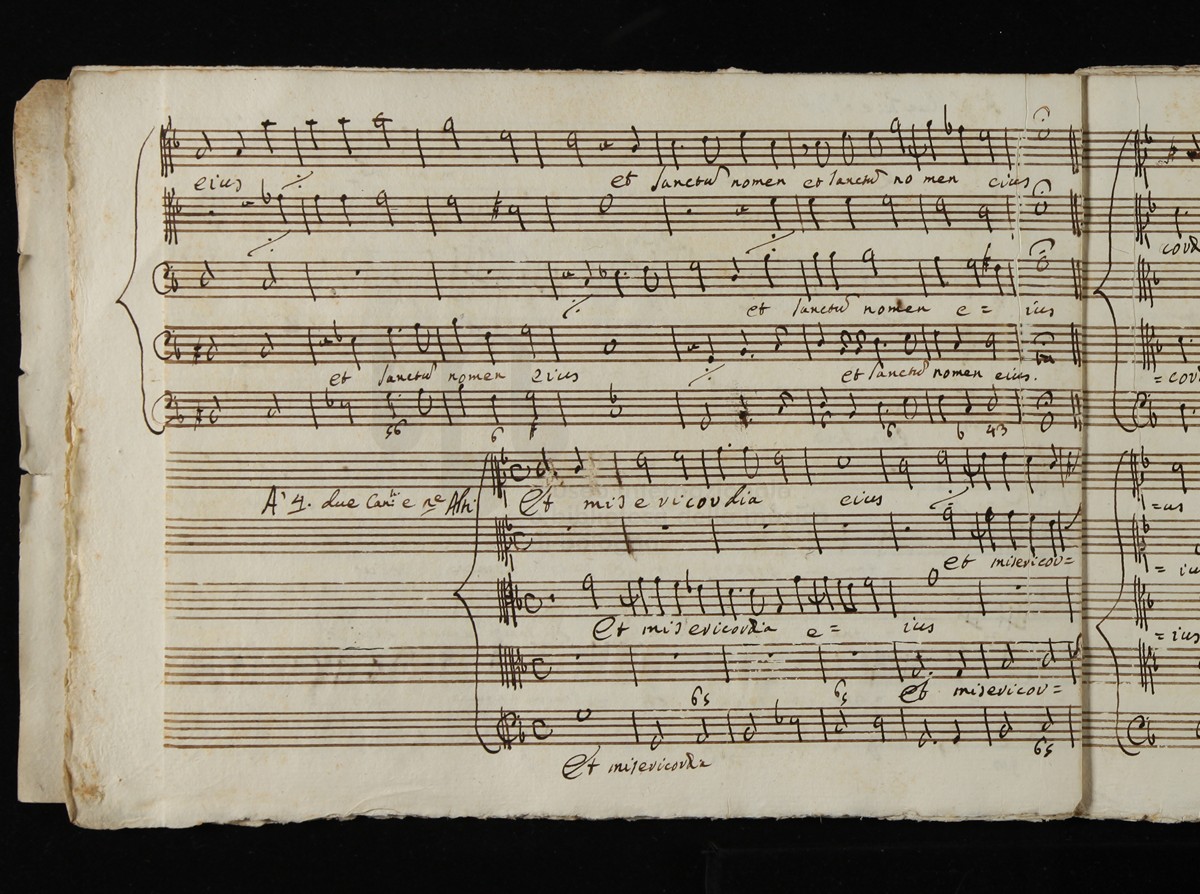 eius et sanctũ nomen et sanctũ nomen eius
et sanctũ nomen e= ius
et sanctũ nomen eius et sanctũ nomen eius.
56 6 6 6 43
A' 4. due Canti e ne Alti Et misericordia eius
et misericor=
Et misericordia e= ius
65 65 et misericor=
65
Et misericordia
=us
= ius